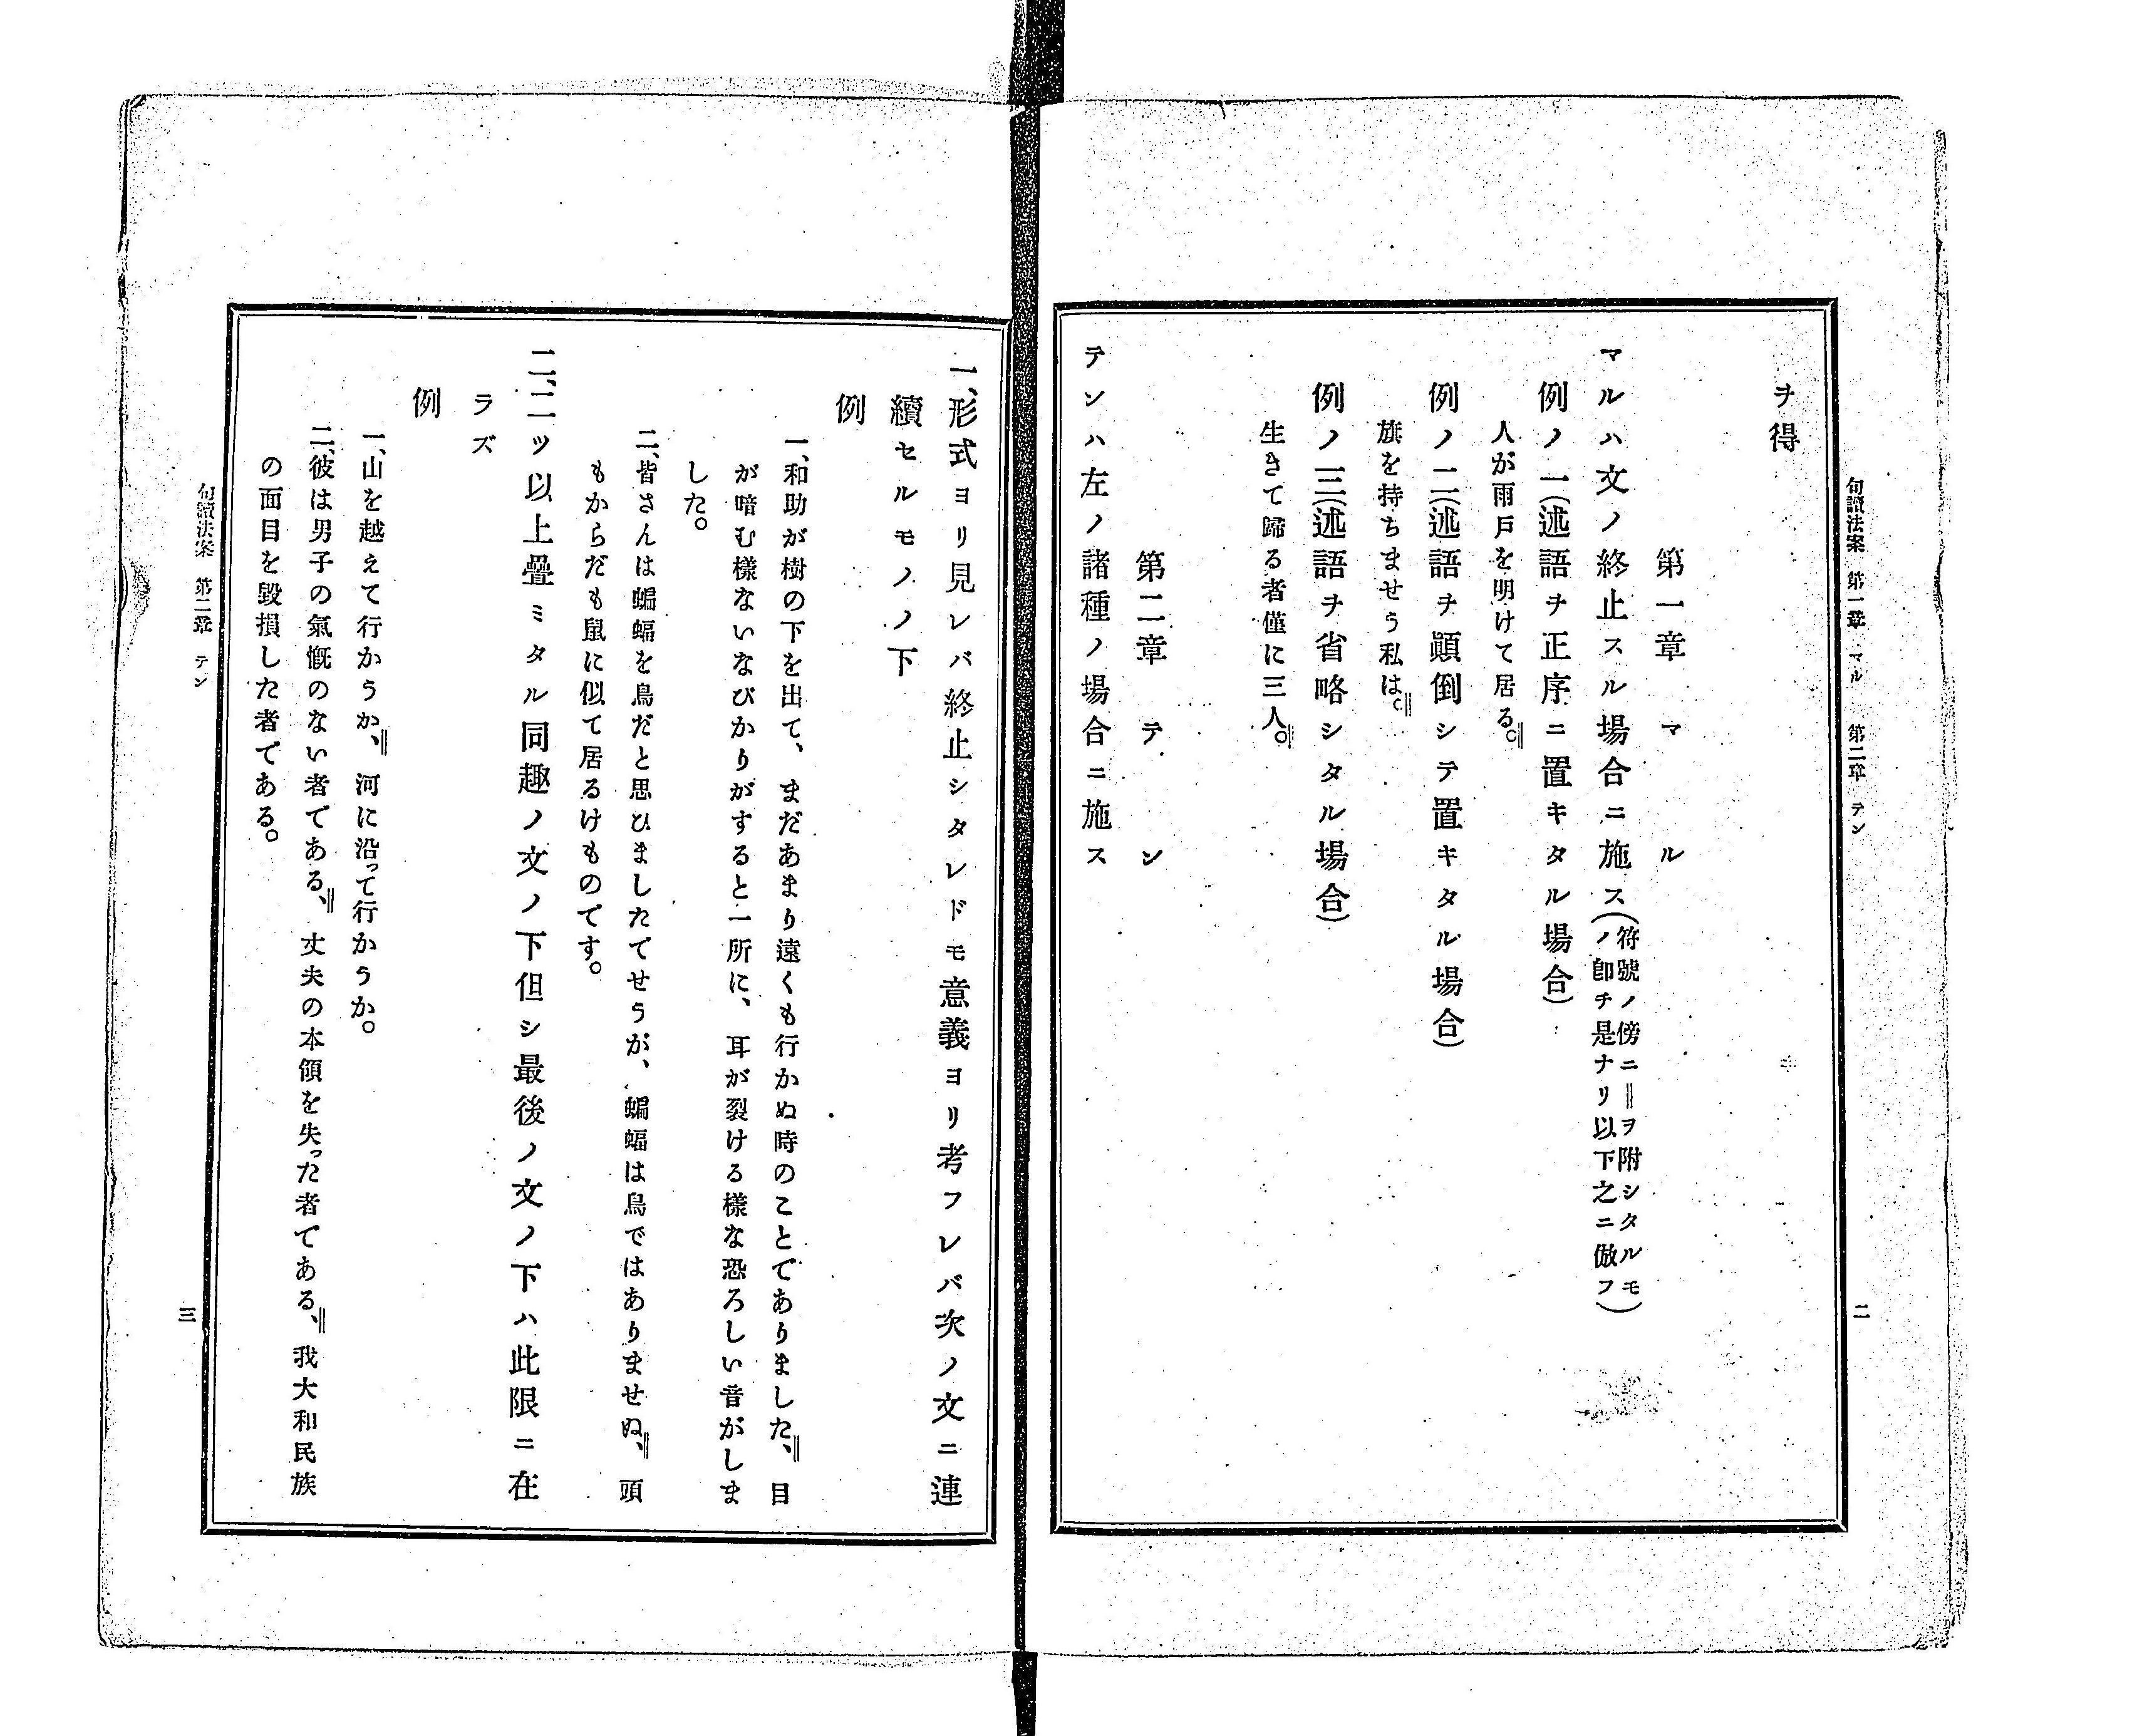 句讀法案　第一章　マル　　第二章　テン
二
ヲ得
第一章　マル
マルハ文ノ終止スル場合ニ施ス(符號ノ傍ニ‖ヲ附シタルモ
ノ卽チ是ナリ以下之ニ倣フ)
例ノ一(述語ヲ正序ニ置キタル場合)
人が雨戸を明けて居る。
例ノ二(述語ヲ顚倒シテ置キタル場合)
旗を持ちませう私は。
例ノ三(述語ヲ省略シタル場合)
生きて歸る者僅に三人。
第二章　テン
テンハ左ノ諸種ノ場合ニ施ス
一、形式ヨリ見レバ終止シタレドモ意義ヨリ考フレバ次ノ文ニ連
續セルモノノ下
例
一、和助が樹の下を出て、まだあまり遠くも行かぬ時のことでありました、目
が暗む樣ないなびかりがすると一所に、耳が裂ける樣な恐ろしい音がしま
した。
二、皆さんは蝙蝠を鳥だと思ひましたでせうが、蝙蝠は鳥ではありませぬ、頭
もからだも鼠に似て居るけものです。
二、二ツ以上疊ミタル同趣ノ文ノ下但シ最後ノ文ノ下ハ此限ニ在
ラズ
例
一、山を越えて行かうか、河に沿って行かうか。
二、彼は男子の氣慨のない者である、丈夫の本領を失った者である、我大和民族
の面目を毀損した者である。
句讀法案　第二章　テン
三